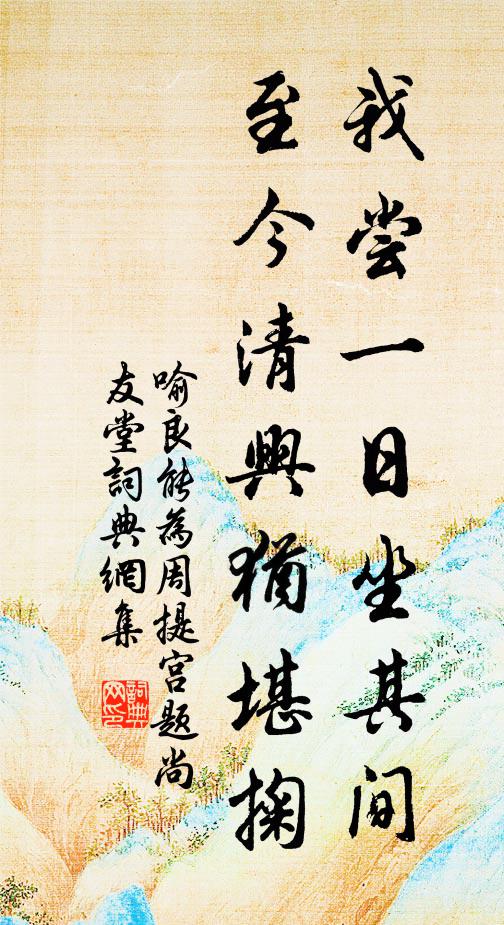 我尝一日坐其间
至今清興猶堪掬
喻良能為周提宫题尚
友堂詞典網集
詞典
网印